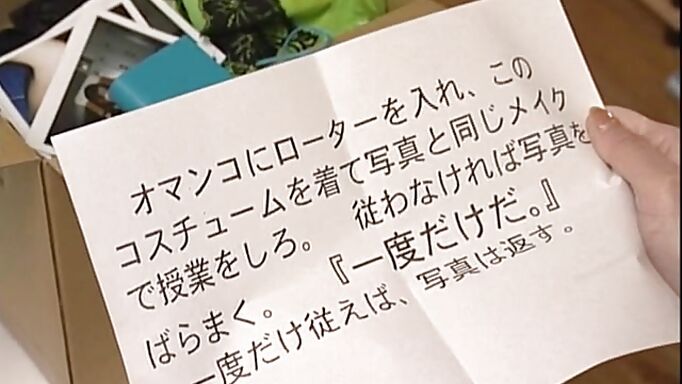 オマンコにローターを入れ、この
コスチュームを着て写真と同じメイク
で授業をしろ。 従わなければ写真を
ばらまく。 『一度だけだ。』
一度だけ従えば、写真は返す。